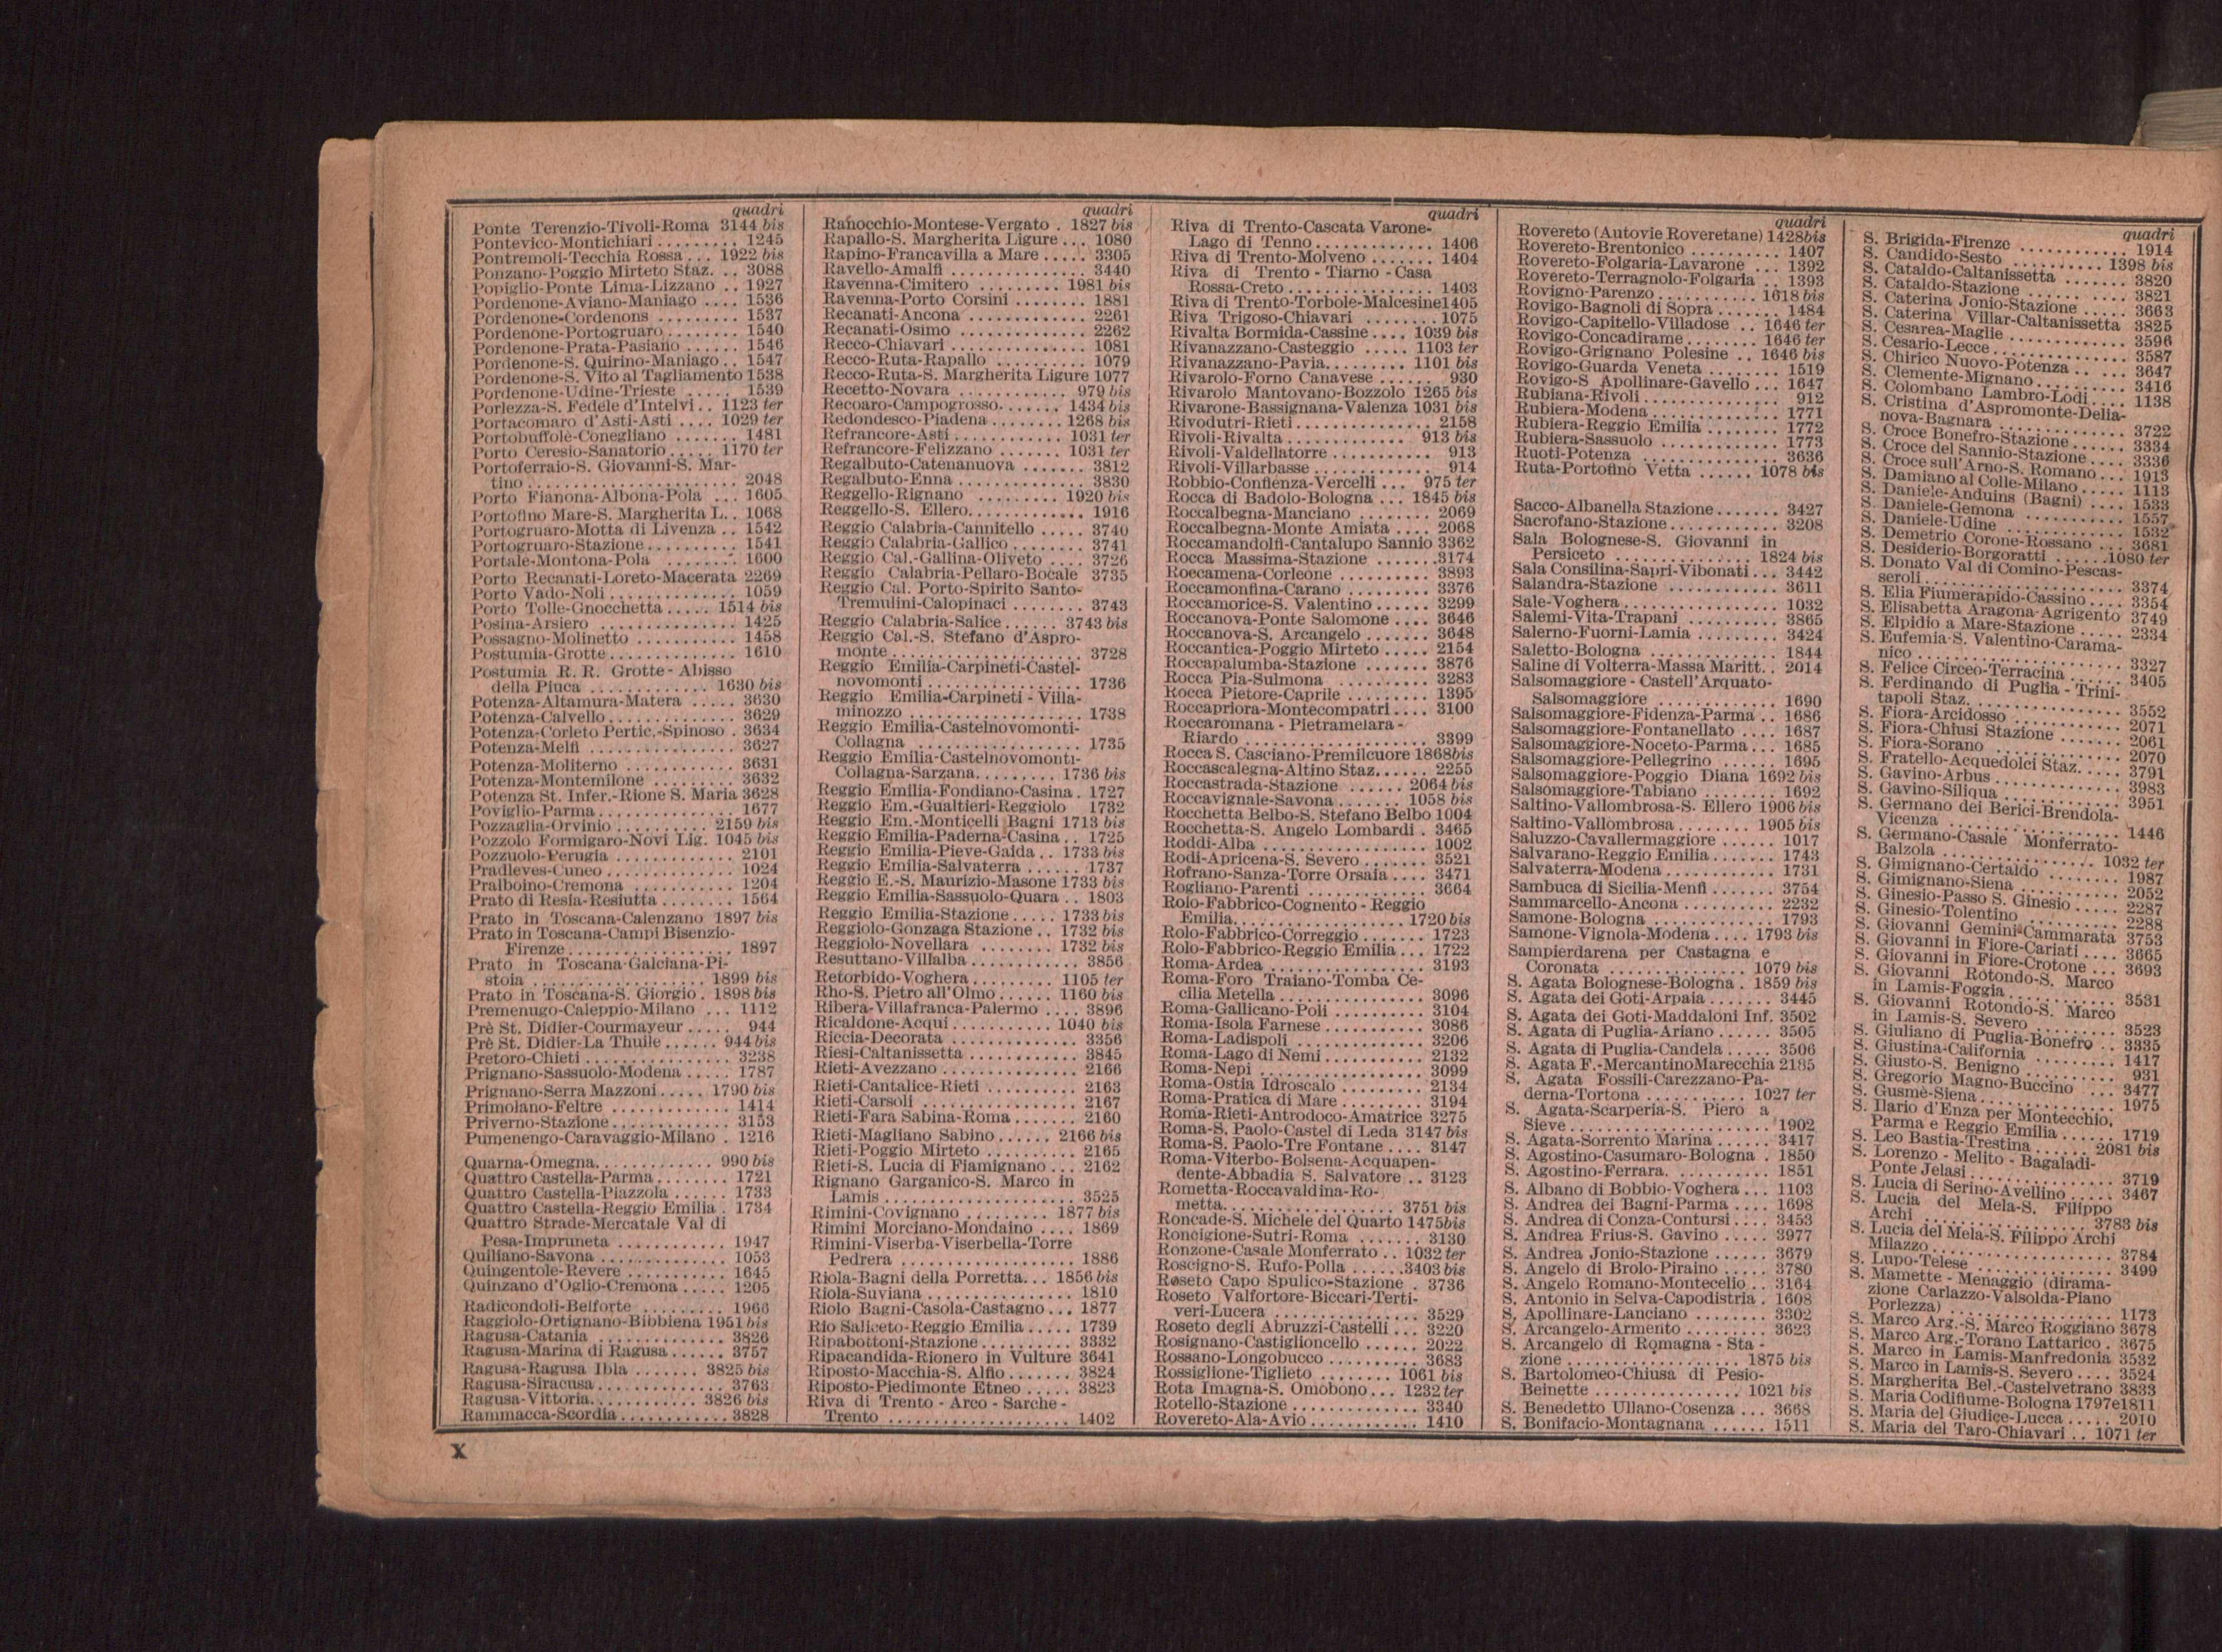 quadri
Ponte Terenzio-Tivoli-Roma 3144 bis
Pontevico-Montichiari ......... 1245
Pontremoli-Tecchia Rossa ... 1922 bis
Ponzano-Poggio Mirteto Staz. .. 3088
Popiglio-Ponte Lima-Lizzano .. 1927
Pordenone-Aviano-Maniago .... 1536
Pordenone-Cordenons ......... 1537
Pordenone-Portogruaro ......... 1540
Pordenone-Prata-Pasiano ...... 1546
Pordenone-S. Quirino-Maniago .. 1547
Pordenone-S. Vito al Tagliamento 1538
Pordenone-Udine-Trieste ..... 1539
Porlezza-S. Fedele d'Intelvi .. 1123 ter
Portacomaro d'Asti-Asti .... 1029 ter
Portobuffolè-Conegliano ....... 1481
Porto Ceresio-Sanatorio ..... 1170 ter
Portoferraio-S. Giovanni-S. Mar-
tino ........................ 2048
Porto Fianona-Albona-Pola ... 1605
Portofino Mare-S. Margherita L.. 1068
Portogruaro-Motta di Livenza .. 1542
Portogruaro-Stazione .......... 1541
Portale-Montona-Pola ........ 1600
Porto Recanati-Loreto-Macerata 2269
Porto Vado-Noli .............. 1059
Porto Tolle-Gnocchetta ..... 1514 bis
Posina-Arsiero ............... 1425
Possagno-Molinetto ........... 1458
Postumia-Grotte .............. 1610
Postumia R. R. Grotte - Abisso
della Piuca ............ 1630 bis
Potenza-Altamura-Matera ..... 3630
Potenza-Calvello .............. 3629
Potenza-Corleto Pertic.-Spinoso . 3634
Potenza-Melfi ................ 3627
Potenza-Moliterno ............ 3631
Potenza-Montemilone ......... 3632
Potenza St. Infer.-Rione S. Maria 3628
Poviglio-Parma ............... 1677
Pozzaglia-Orvinio .......... 2159 bis
Pozzolo Formigaro-Novi Lig. 1045 bis
Pozzuolo-Perugia ............. 2101
Pradleves-Cuneo .............. 1024
Pralboino-Cremona ........... 1204
Prato di Resia-Resiutta ........ 1564
Prato in Toscana-Calenzano 1897 bis
Prato in Toscana-Campi Bisenzio-
Firenze .................. 1897
Prato in Toscana-Galciana-Pi-
stoia .................... 1899 bis
Prato in Toscana-S. Giorgio . 1898 bis
Premenugo-Caleppio-Milano ... 1112
Prè St. Didier-Courmayeur ..... 944
Prè St. Didier-La Thuile ...... 944 bis
Pretoro-Chieti ................ 3238
Prignano-Sassuolo-Modena ..... 1787
Prignano-Serra Mazzoni ..... 1790 bis
Primolano-Feltre ............. 1414
Priverno-Stazione ............. 3153
Pumenengo-Caravaggio-Milano . 1216
Quarna-Omegna. ............ 990 bis
Quattro Castella-Parma ........ 1721
Quattro Castella-Piazzola ...... 1733
Quattro Castella-Reggio Emilia . 1734
Quattro Strade-Mercatale Val di
Pesa-Impruneta ............ 1947
Quiliano-Savona .............. 1053
Quingentole-Revere ........... 1645
Quinzano d'Oglio-Cremona ..... 1205
Radicondoli-Belforte ......... 1966
Raggiolo-Ortignano-Bibbiena 1951 bis
Ragusa-Catania .............. 3826
Ragusa-Marina di Ragusa ...... 3757
Ragusa-Ragusa Ibla ....... 3825 bis
Ragusa-Siracusa .............. 3763
Ragusa-Vittoria. ........... 3826 bis
Rammacca-Scordia ............ 3828
quadri
Ranocchio-Montese-Vergato . 1827 bis
Rapallo-S. Margherita Ligure ... 1080
Rapino-Francavilla a Mare ..... 3305
Ravello-Amalfi ............... 3440
Ravenna-Cimitero ......... 1981 bis
Ravenna-Porto Corsini ........ 1881
Recanati-Ancona ............. 2261
Recanati-Osimo .............. 2262
Recco-Chiavari ............... 1081
Recco-Ruta-Rapallo .......... 1079
Recco-Ruta-S. Margherita Ligure 1077
Recetto-Novara ............ 979 bis
Recoaro-Campogrosso. ...... 1434 bis
Redondesco-Piadena ........ 1268 bis
Refrancore-Asti ............ 1031 ter
Refrancore-Felizzano ....... 1031 ter
Regalbuto-Catenanuova ....... 3812
Regalbuto-Enna .............. 3830
Reggello-Rignano ......... 1920 bis
Reggello-S. Ellero. ........... 1916
Reggio Calabria-Cannitello ..... 3740
Reggio Calabria-Gallico ........ 3741
Reggio Cal.-Gallina-Oliveto .... 3726
Reggio Calabria-Pellaro-Bocale 3735
Reggio Cal. Porto-Spirito Santo-
Tremulini-Calopinaci ........ 3743
Reggio Calabria-Salice ...... 3743 bis
Reggio Cal.-S. Stefano d'Aspro-
monte ..................... 3728
Reggio Emilia-Carpineti-Castel-
novomonti ................. 1736
Reggio Emilia-Carpineti - Villa-
minozzo ................... 1738
Reggio Emilia-Castelnovomonti-
Collagna .................. 1735
Reggio Emilia-Castelnovomonti-
Collagna-Sarzana. ........ 1736 bis
Reggio Emilia-Fondiano-Casina . 1727
Reggio Em.-Gualtieri-Reggiolo 1732
Reggio Em.-Monticelli Bagni 1713 bis
Reggio Emilia-Paderna-Casina .. 1725
Reggio Emilia-Pieve-Gaida .. 1733 bis
Reggio Emilia-Salvaterra ...... 1737
Reggio E.-S. Maurizio-Masone 1733 bis
Reggio Emilia-Sassuolo-Quara .. 1803
Reggio Emilia-Stazione ..... 1733 bis
Reggiolo-Gonzaga Stazione .. 1732 bis
Reggiolo-Novellara ........ 1732 bis
Resuttano-Villalba ............ 3856
Retorbido-Voghera ......... 1105 ter
Rho-S. Pietro all'Olmo ...... 1160 bis
Ribera-Villafranca-Palermo .... 3896
Ricaldone-Acqui ........... 1040 bis
Riccia-Decorata .............. 3356
Riesi-Caltanissetta ............ 3845
Rieti-Avezzano ............... 2166
Rieti-Cantalice-Rieti .......... 2163
Rieti-Carsoli ................. 2167
Rieti-Fara Sabina-Roma ....... 2160
Rieti-Magliano Sabino ...... 2166 bis
Rieti-Poggio Mirteto .......... 2165
Rieti-S. Lucia di Fiamignano ... 2162
Rignano Garganico-S. Marco in
Lamis ..................... 3525
Rimini-Covignano ......... 1877 bis
Rimini Morciano-Mondaino .... 1869
Rimini-Viserba-Viserbella-Torre
Pedrera ................... 1886
Riola-Bagni della Porretta. .. 1856 bis
Riola-Suviana ................ 1810
Riolo Bagni-Casola-Castagno ... 1877
Rio Saliceto-Reggio Emilia ..... 1739
Ripabottoni-Stazione .......... 3332
Ripacandida-Rionero in Vulture 3641
Riposto-Macchia-S. Alfio ....... 3824
Riposto-Piedimonte Etneo ..... 3823
Riva di Trento - Arco - Sarche -
Trento .................... 1402
quadri
Riva di Trento-Cascata Varone-
Lago di Tenno ............. 1406
Riva di Trento-Molveno ....... 1404
Riva di Trento - Tiarno - Casa
Rossa-Creto ............... 1403
Riva di Trento-Torbole-Malcesine1405
Riva Trigoso-Chiavari ........ 1075
Rivalta Bormida-Cassine .... 1039 bis
Rivanazzano-Casteggio ..... 1103 ter
Rivanazzano-Pavia. ......... 1101 bis
Rivarolo-Forno Canavese ...... 930
Rivarolo Mantovano-Bozzolo 1265 bis
Rivarone-Bassignana-Valenza 1031 bis
Rivodutri-Rieti ............... 2158
Rivoli-Rivalta ............. 913 bis
Rivoli-Valdellatorre ........... 913
Rivoli-Villarbasse ............. 914
Robbio-Confienza-Vercelli ... 975 ter
Rocca di Badolo-Bologna ... 1845 bis
Roccalbegna-Manciano ........ 2069
Roccalbegna-Monte Amiata .... 2068
Roccamandolfi-Cantalupo Sannio 3362
Rocca Massima-Stazione .......3174
Roccamena-Corleone .......... 3893
Roccamonfina-Carano ......... 3376
Roccamorice-S. Valentino ...... 3299
Roccanova-Ponte Salomone .... 3646
Roccanova-S. Arcangelo ....... 3648
Roccantica-Poggio Mirteto ..... 2154
Roccapalumba-Stazione ....... 3876
Rocca Pia-Sulmona .......... 3283
Rocca Pietore-Caprile ......... 1395
Roccapriora-Montecompatri .... 3100
Roccaromana - Pietramelara -
Riardo .................... 3399
Rocca S. Casciano-Premilcuore 1868bis
Roccascalegna-Altino Staz. ..... 2255
Roccastrada-Stazione ...... 2064 bis
Roccavignale-Savona ....... 1058 bis
Rocchetta Belbo-S. Stefano Belbo 1004
Rocchetta-S. Angelo Lombardi . 3465
Roddi-Alba .................. 1002
Rodi-Apricena-S. Severo ....... 3521
Rofrano-Sanza-Torre Orsaia .... 3471
Rogliano-Parenti ............. 3664
Rolo-Fabbrico-Cognento - Reggio
Emilia. ................... 1720 bis
Rolo-Fabbrico-Correggio ....... 1723
Rolo-Fabbrico-Reggio Emilia ... 1722
Roma-Ardea ................. 3193
Roma-Foro Traiano-Tomba Ce-
cilia Metella ................ 3096
Roma-Gallicano-Poli .......... 3104
Roma-Isola Farnese ........... 3086
Roma-Ladispoli .............. 3206
Roma-Lago di Nemi ........... 2132
Roma-Nepi .................. 3099
Roma-Ostia Idroscalo ......... 2134
Roma-Pratica di Mare ......... 3194
Roma-Rieti-Antrodoco-Amatrice 3275
Roma-S. Paolo-Castel di Leda 3147 bis
Roma-S. Paolo-Tre Fontane .... 3147
Roma-Viterbo-Bolsena-Acquapen-
dente-Abbadia S. Salvatore .. 3123
Rometta-Roccavaldina-Ro-
metta. ................... 3751 bis
Roncade-S. Michele del Quarto 1475bis
Ronciglione-Sutri-Roma ....... 3130
Ronzone-Casale Monferrato .. 1032 ter
Roscigno-S. Rufo-Polla ......3403 bis
Roseto Capo Spulico-Stazione . 3736
Roseto Valfortore-Biccari-Terti-
veri-Lucera ................ 3529
Roseto degli Abruzzi-Castelli ... 3220
Rosignano-Castiglioncello ...... 2022
Rossano-Longobucco .......... 3683
Rossiglione-Tiglieto ........ 1061 bis
Rota Imagna-S. Omobono ... 1232 ter
Rotello-Stazione .............. 3340
Rovereto-Ala-Avio ............ 1410
quadri
Rovereto (Autovie Roveretane) 1428bis
Rovereto-Brentonico .......... 1407
Rovereto-Folgaria-Lavarone ... 1392
Rovereto-Terragnolo-Folgaria .. 1393
Rovigno-Parenzo ........... 1618 bis
Rovigo-Bagnoli di Sopra ....... 1484
Rovigo-Capitello-Villadose .. 1646 ter
Rovigo-Concadirame ........ 1646 ter
Rovigo-Grignano Polesine .. 1646 bis
Rovigo-Guarda Veneta ........ 1519
Rovigo-S Apollinare-Gavello ... 1647
Rubiana-Rivoli ............... 912
Rubiera-Modena .............. 1771
Rubiera-Reggio Emilia ........ 1772
Rubiera-Sassuolo ............. 1773
Ruoti-Potenza ............... 3636
Ruta-Portofino Vetta ...... 1078 bis
Sacco-Albanella Stazione ....... 3427
Sacrofano-Stazione ............ 3208
Sala Bolognese-S. Giovanni in
Persiceto ................ 1824 bis
Sala Consilina-Sapri-Vibonati ... 3442
Salandra-Stazione ............ 3611
Sale-Voghera ................. 1032
Salemi-Vita-Trapani .......... 3865
Salerno-Fuorni-Lamia ......... 3424
Saletto-Bologna .............. 1844
Saline di Volterra-Massa Maritt. . 2014
Salsomaggiore - Castell'Arquato-
Salsomaggiore ............. 1690
Salsomaggiore-Fidenza-Parma .. 1686
Salsomaggiore-Fontanellato .... 1687
Salsomaggiore-Noceto-Parma ... 1685
Salsomaggiore-Pellegrino ...... 1695
Salsomaggiore-Poggio Diana 1692 bis
Salsomaggiore-Tabiano ........ 1692
Saltino-Vallombrosa-S. Ellero 1906 bis
Saltino-Vallombrosa ........ 1905 bis
Saluzzo-Cavallermaggiore ...... 1017
Salvarano-Reggio Emilia ....... 1743
Salvaterra-Modena ............ 1731
Sambuca di Sicilia-Menfi ....... 3754
Sammarcello-Ancona .......... 2232
Samone-Bologna ............. 1793
Samone-Vignola-Modena .... 1793 bis
Sampierdarena per Castagna e
Coronata ............... 1079 bis
S. Agata Bolognese-Bologna . 1859 bis
S. Agata dei Goti-Arpaia ....... 3445
S. Agata dei Goti-Maddaloni Inf. 3502
S. Agata di Puglia-Ariano ...... 3505
S. Agata di Puglia-Candela ..... 3506
S. Agata F.-MercantinoMarecchia 2185
S. Agata Fossili-Carezzano-Pa-
derna-Tortona ............ 1027 ter
S. Agata-Scarperia-S. Piero a
Sieve ...................... 1902
S. Agata-Sorrento Marina ...... 3417
S. Agostino-Casumaro-Bologna . 1850
S. Agostino-Ferrara. .......... 1851
S. Albano di Bobbio-Voghera ... 1103
S. Andrea dei Bagni-Parma .... 1698
S. Andrea di Conza-Contursi .... 3453
S. Andrea Frius-S. Gavino ..... 3977
S. Andrea Jonio-Stazione ...... 3679
S. Angelo di Brolo-Piraino ..... 3780
S. Angelo Romano-Montecelio .. 3164
S. Antonio in Selva-Capodistria . 1608
S. Apollinare-Lanciano ........ 3302
S. Arcangelo-Armento ......... 3623
S. Arcangelo di Romagna - Sta -
zione .................... 1875 bis
S. Bartolomeo-Chiusa di Pesio-
Beinette ................. 1021 bis
S. Benedetto Ullano-Cosenza ... 3668
S. Bonifacio-Montagnana ...... 1511
quadri
S. Brigida-Firenze ........... 1914
S. Candido-Sesto .......... 1398 bis
S. Cataldo-Caltanissetta ....... 3820
S. Cataldo-Stazione ........... 3821
S. Caterina Jonio-Stazione ..... 3663
S. Caterina Villar-Caltanissetta 3825
S. Cesarea-Maglie ............. 3596
S. Cesario-Lecce .............. 3587
S. Chirico Nuovo-Potenza ..... 3647
S. Clemente-Mignano .......... 3416
S. Colombano Lambro-Lodi .... 1138
S. Cristina d'Aspromonte-Delia-
nova-Bagnara .............. 3722
S. Croce Bonefro-Stazione ..... 3334
S. Croce del Sannio-Stazione .... 3336
S. Croce sull'Arno-S. Romano ... 1913
S. Damiano al Colle-Milano ..... 1113
S. Daniele-Anduins (Bagni) .... 1533
S. Daniele-Gemona ........... 1557
S. Daniele-Udine ............. 1532
S. Demetrio Corone-Rossano ... 3681
S. Desiderio-Borgoratti ......1080 ter
S. Donato Val di Comino-Pescas-
seroli ..................... 3374
S. Elia Fiumerapido-Cassino .... 3354
S. Elisabetta Aragona-Agrigento 3749
S. Elpidio a Mare-Stazione ..... 2334
S. Eufemia-S. Valentino-Carama-
nico ...................... 3327
S. Felice Circeo-Terracina ...... 3405
S. Ferdinando di Puglia - Trini-
tapoli Staz. ................ 3552
S. Fiora-Arcidosso ............ 2071
S. Fiora-Chiusi Stazione ....... 2061
S. Fiora-Sorano .............. 2070
S. Fratello-Acquedolci Staz. .... 3791
S. Gavino-Arbus .............. 3983
S. Gavino-Siliqua ............. 3951
S. Germano dei Berici-Brendola-
Vicenza ................... 1446
S. Germano-Casale Monferrato-
Balzola ................. 1032 ter
S. Gimignano-Certaldo ........ 1987
S. Gimignano-Siena ........... 2052
S. Ginesio-Passo S. Ginesio ..... 2287
S. Ginesio-Tolentino .......... 2288
S. Giovanni Gemini-Cammarata 3753
S. Giovanni in Fiore-Cariati .... 3665
S. Giovanni in Fiore-Crotone ... 3693
S. Giovanni Rotondo-S. Marco
in Lamis-Foggia ............ 3531
S. Giovanni Rotondo-S. Marco
in Lamis-S. Severo .......... 3523
S. Giuliano di Puglia-Bonefro .. 3335
S. Giustina-California ......... 1417
S. Giusto-S. Benigno .......... 931
S. Gregorio Magno-Buccino ... 3477
S. Gusmè-Siena ............... 1975
S. Ilario d'Enza per Montecchio,
Parma e Reggio Emilia ...... 1719
S. Leo Bastia-Trestina ...... 2081 bis
S. Lorenzo - Melito - Bagaladi-
Ponte Jelasi ................ 3719
S. Lucia di Serino-Avellino ..... 3467
S. Lucia del Mela-S. Filippo
Archi ................... 3783 bis
S. Lucia del Mela-S. Filippo Archi
Milazzo ................... 3784
S. Lupo-Telese ............... 3499
S. Mamette - Menaggio (dirama-
zione Carlazzo-Valsolda-Piano
Porlezza) .................. 1173
S. Marco Arg.-S. Marco Roggiano 3678
S. Marco Arg.-Torano Lattarico . 3675
S. Marco in Lamis-Manfredonia 3532
S. Marco in Lamis-S. Severo .... 3524
S. Margherita Bel.-Castelvetrano 3833
S. Maria Codifiume-Bologna 1797e1811
S. Maria del Giudice-Lucca ..... 2010
S. Maria del Taro-Chiavari .. 1071 ter
X